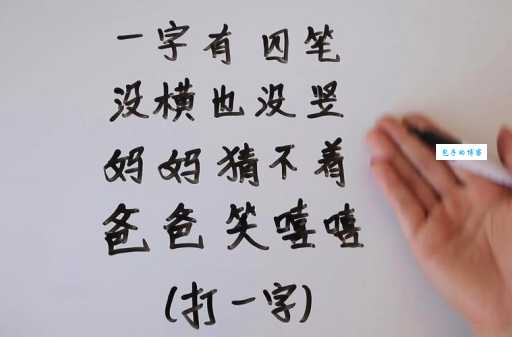 一字有四笔
没横也没竖
妈妈猜不着
爸爸笑嘻嘻
(打一字)
的博客